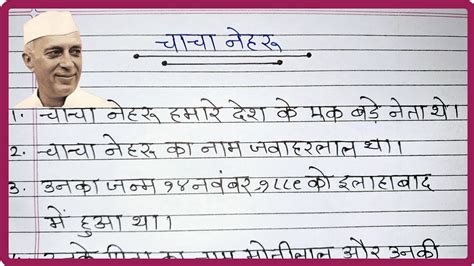 चाचा नेहरू
1. चाचा नेहरू हमारे देश के एक बड़े नेता थे।
2. चाचा नेहरू का नाम जवाहरलाल था।
3. उनका जन्म १४ नवंबर १८८९ को इलाहाबाद
में हुआ था।
4. उनके पिता का नाम मोतीलाल और उनकी